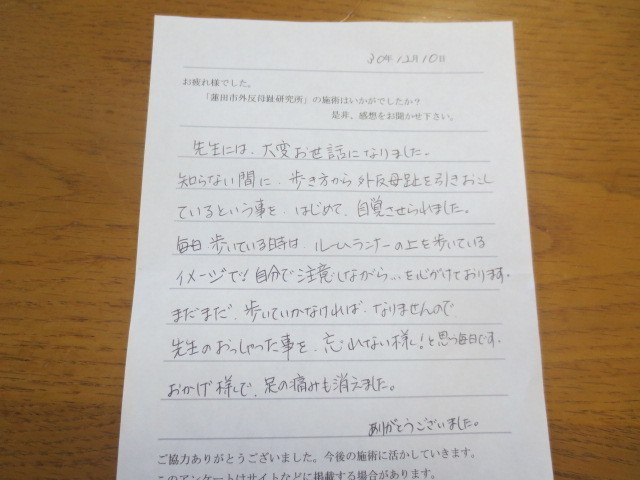 30年12月10日
お疲れ様でした。
「蓮田市外反母趾研究所」の施術はいかがでしたか？
是非、感想をお聞かせ下さい。
先生には、大変お世話になりました。
知らない間に、歩き方から外反母趾を引きおこし
ているという事を、はじめて、自覚させられました。
毎日歩いている時は、ルームランナーの上を歩いている
イメージで！自分で注意しながら…を心がけております。
まだまだ、歩いていかなければ、なりませんので
先生のおっしゃった事を、忘れない様！と思う毎日です。
おかげ様で、足の痛みも消えました。
ありがとうございました。
ご協力ありがとうございました。今後の施術に活かしていきます。
このアンケートはサイトなどに掲載する場合があります。